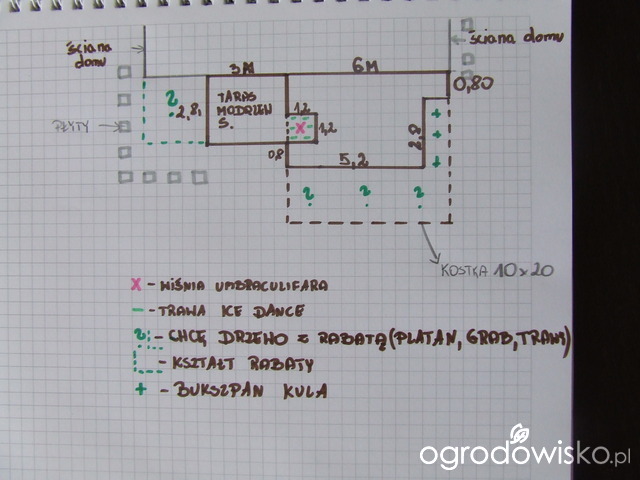 ściana domu
ściana domu
3M
6M
0,80
?
2,8
TARAS
MODRZEŃ
S.
1,2
X
1,2
2,8
+
+
+
PŁYTY
0,8
5,2
?
?
?
KOSTKA 10x20
X - WIŚNIA UMBRACULIFARA
- TRAWA ICE DANCE
? - CHCĘ DRZEWO Z RABATĄ (PLATAN, GRAB, TRAWY)
- KSZTAŁT RABATY
+ - BUKSZPAN KULA
ogrodowisko.pl